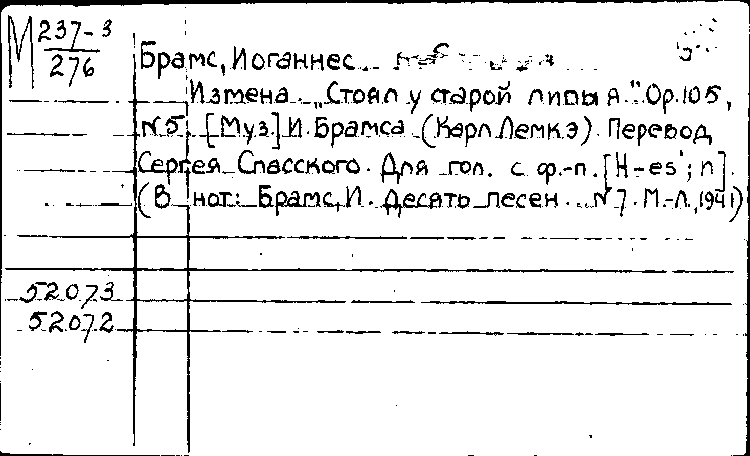 М 237-3
276
Брамс, Иоганнес
Измена. „Стоял у старой липы я." Ор.105,
№5. [Муз.] И. Брамса. (Карл Лемкэ). Перевод
Сергея Спасского. Для гол. с ф.-п. [H-es'; п].
(В нот: Брамс, И. Десять песен... №7. М.-Л., 1941)
52073
52072